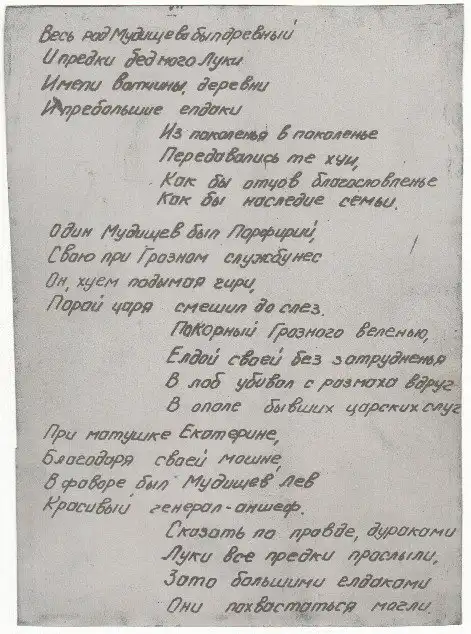 Весь род Мудищева был древный
И предки бедного Луки
Имели вотчины, деревни
И пребольшие елдаки
Из поколенья в поколенье
Передавались те хуи,
Как бы отцов благословленье
Как бы наследие семьи.
Один Мудищев был Порфирий,
Свою при Грозном службу нес
Он, хуем подымая гири,
Порой царя смешил до слез.
Покорный Грозного веленью,
Елдой своей без затрудненья
В лоб убивал с размаха вдруг
В опале бывших царских слуг
При матушке Екатерине,
Благодаря своей мошне,
В фаворе был Мудищев Лев
Красивый генерал-аншеф.
Сказать по правде, дураками
Луки все предки прослыли,
Зато большими елдаками
Они похвастаться могли.